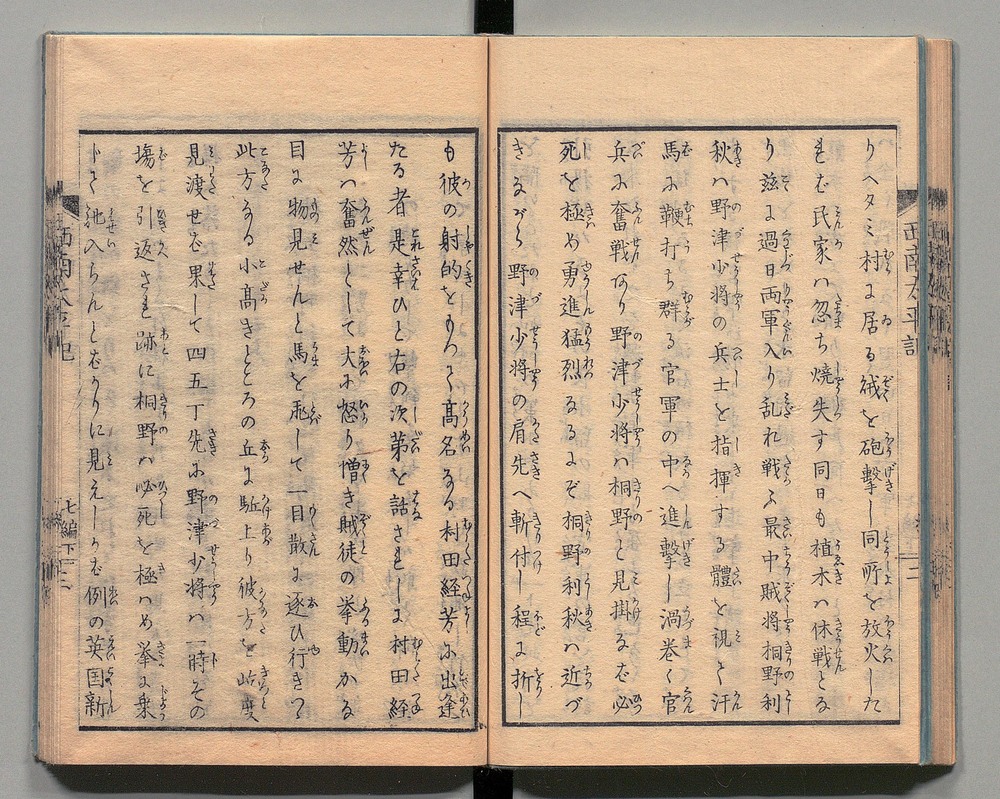 りヘタミ村に居る賊を砲撃し同所を放火した
れば民家ハ忽ち焼失す同日も植木ハ休戦とな
り茲に過日両軍入り乱れ戦ふ最中賊将桐野利
秋ハ野津少将の兵士を指揮する體を視て汗
馬に鞭打ち群る官軍の中へ進撃し渦巻く官
兵に奮戦なり野津少将ハ桐野と見掛るが必
死を極め勇進猛烈るにぞ桐野利秋ハ近づ
きながら野津少将の肩先へ斬付し程に折し
も彼の射的をもつて高名なる村田経芳に出逢
たる者是幸ひと右の次第を話されしに村田経
芳ハ奮然として大に怒り憎き賊徒の挙動かな
目に物見せんと馬を飛して一目散に逐ひ行きつ
此方なる小高きところの丘に駈上り彼方を此度
見渡せば果して四五丁先に野津少将ハ一時その
塲を引返され跡に桐野ハ必死を極はめ挙に乗
じて
入らんとばかりに見えしかば例の英国新
西南太平記
七編下